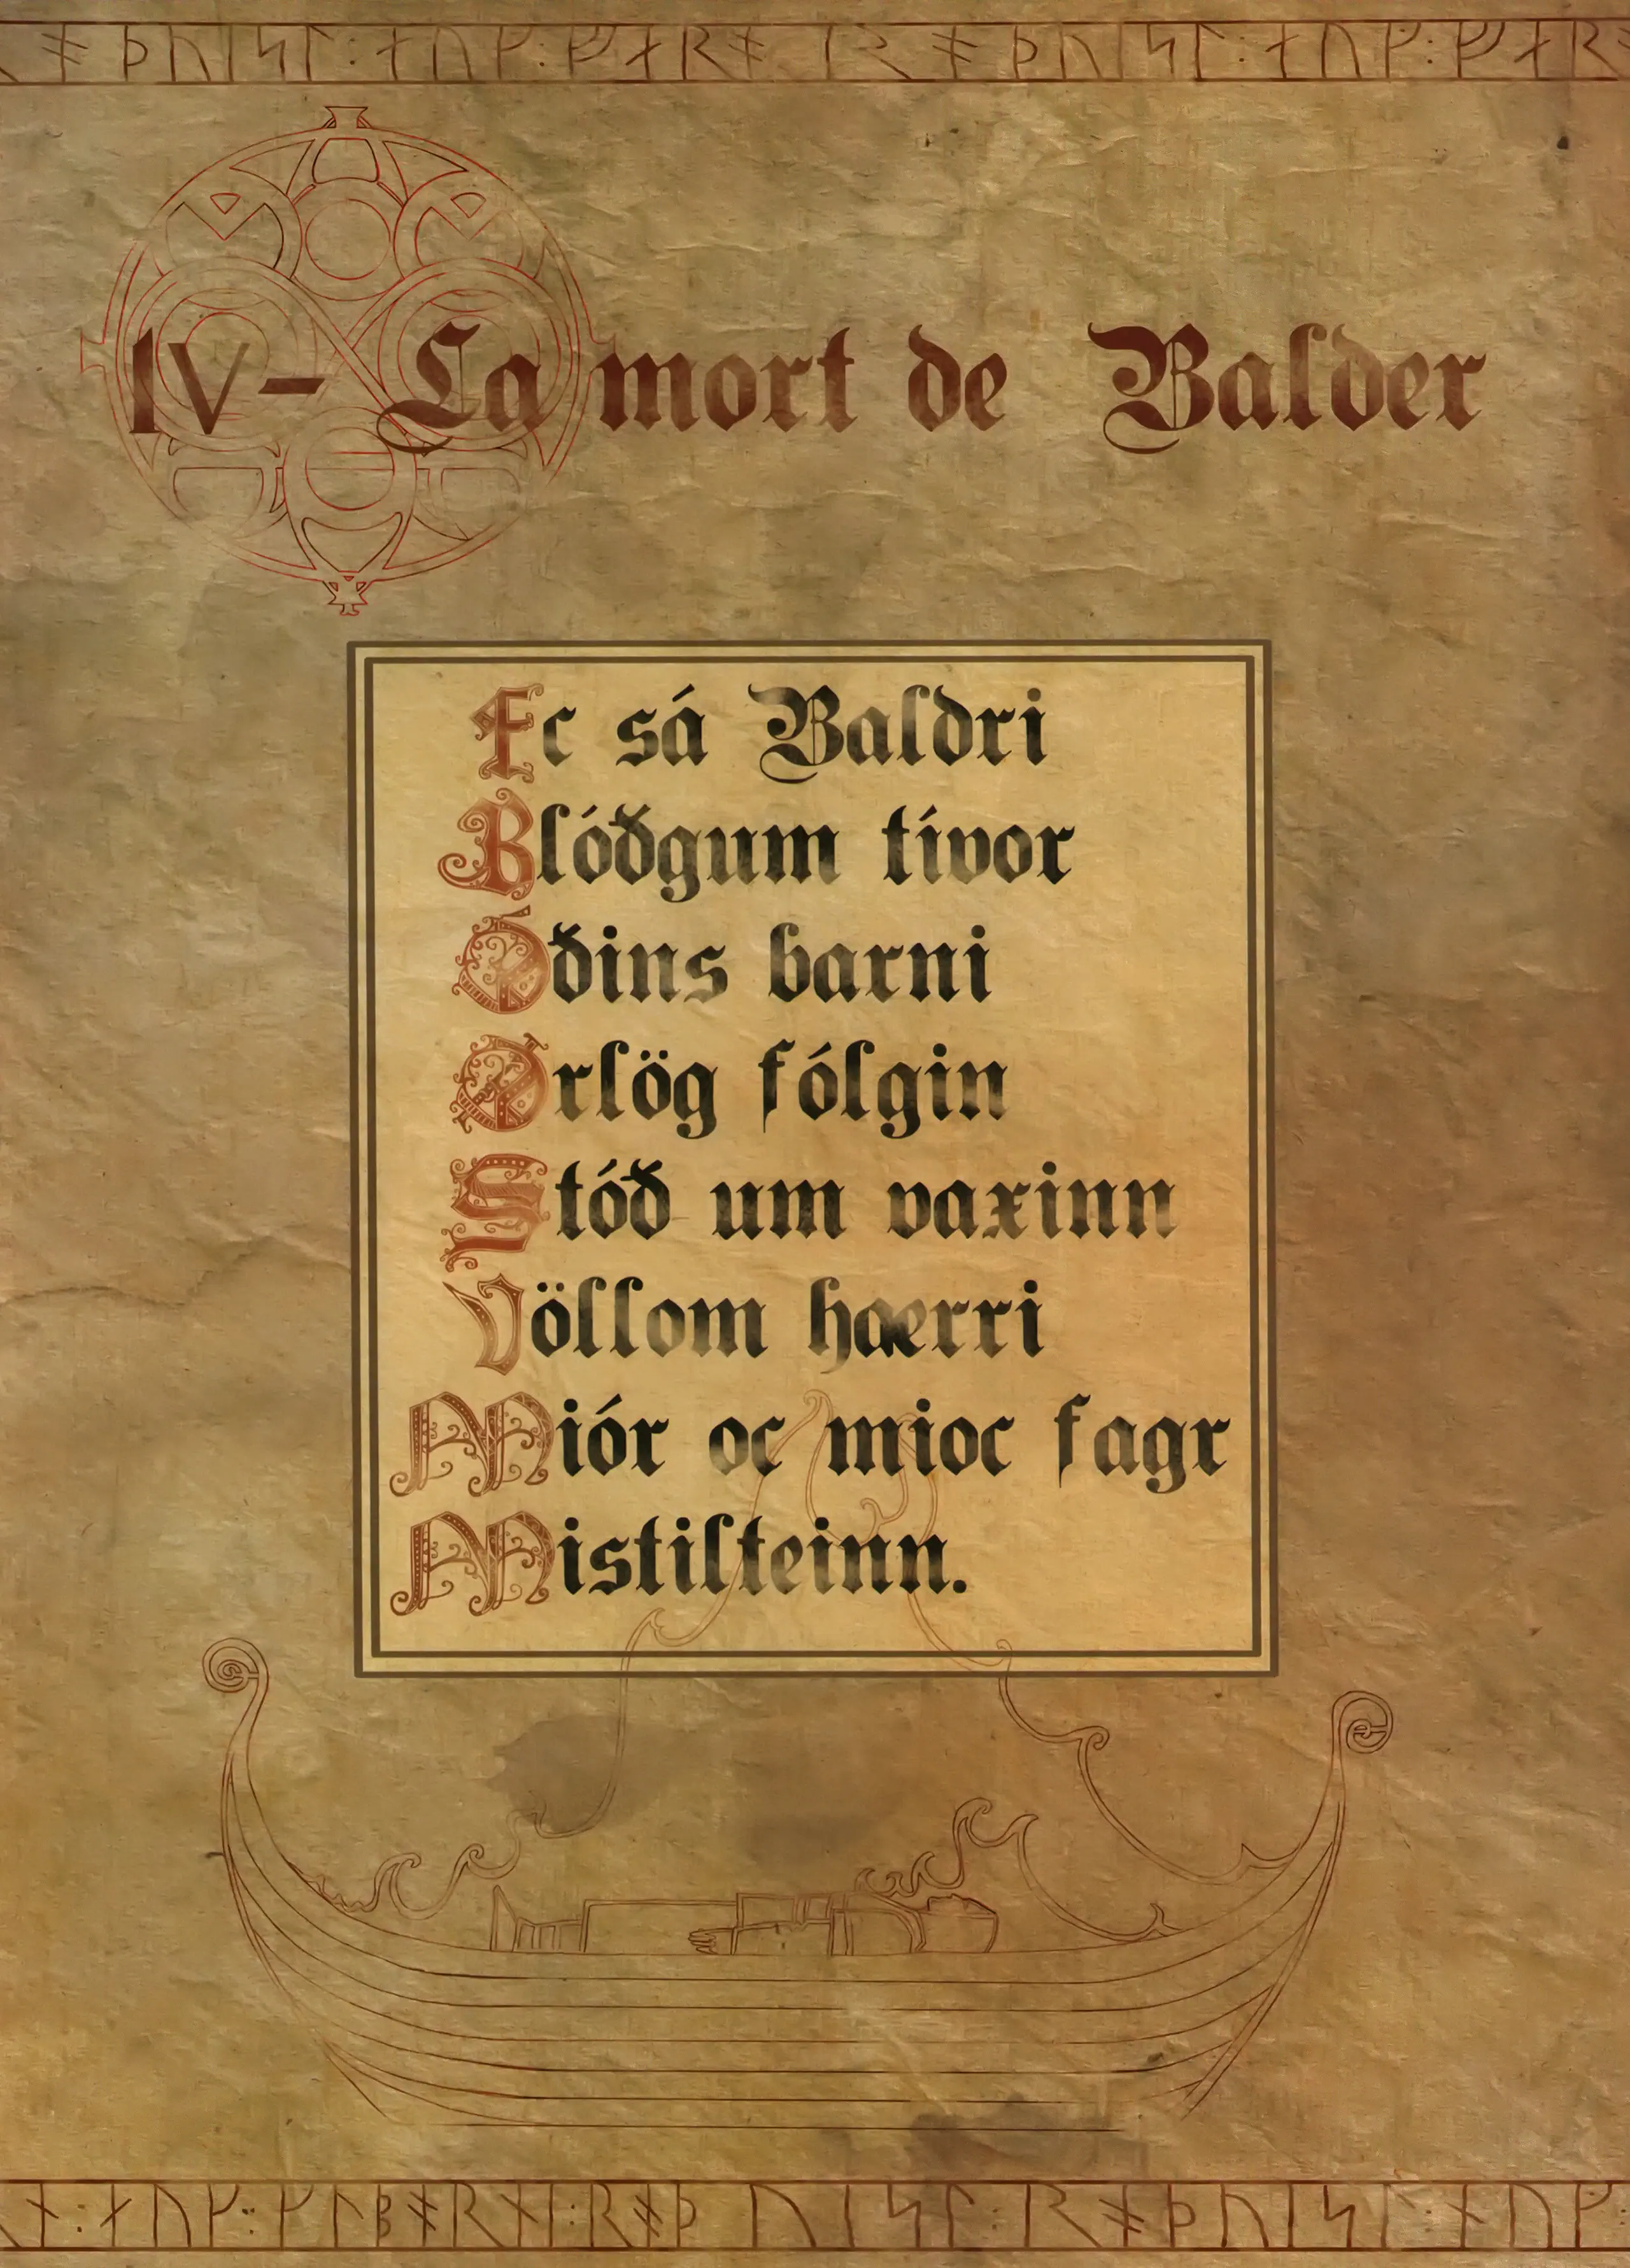 IV- La mort de Balder
Ec sá Baldri
Blóðgum tívor
Óðins barni
Ørlög fólgin
Stóð um vaxinn
Völlom hærri
Miór oc mioc fagr
Mistilteinn.